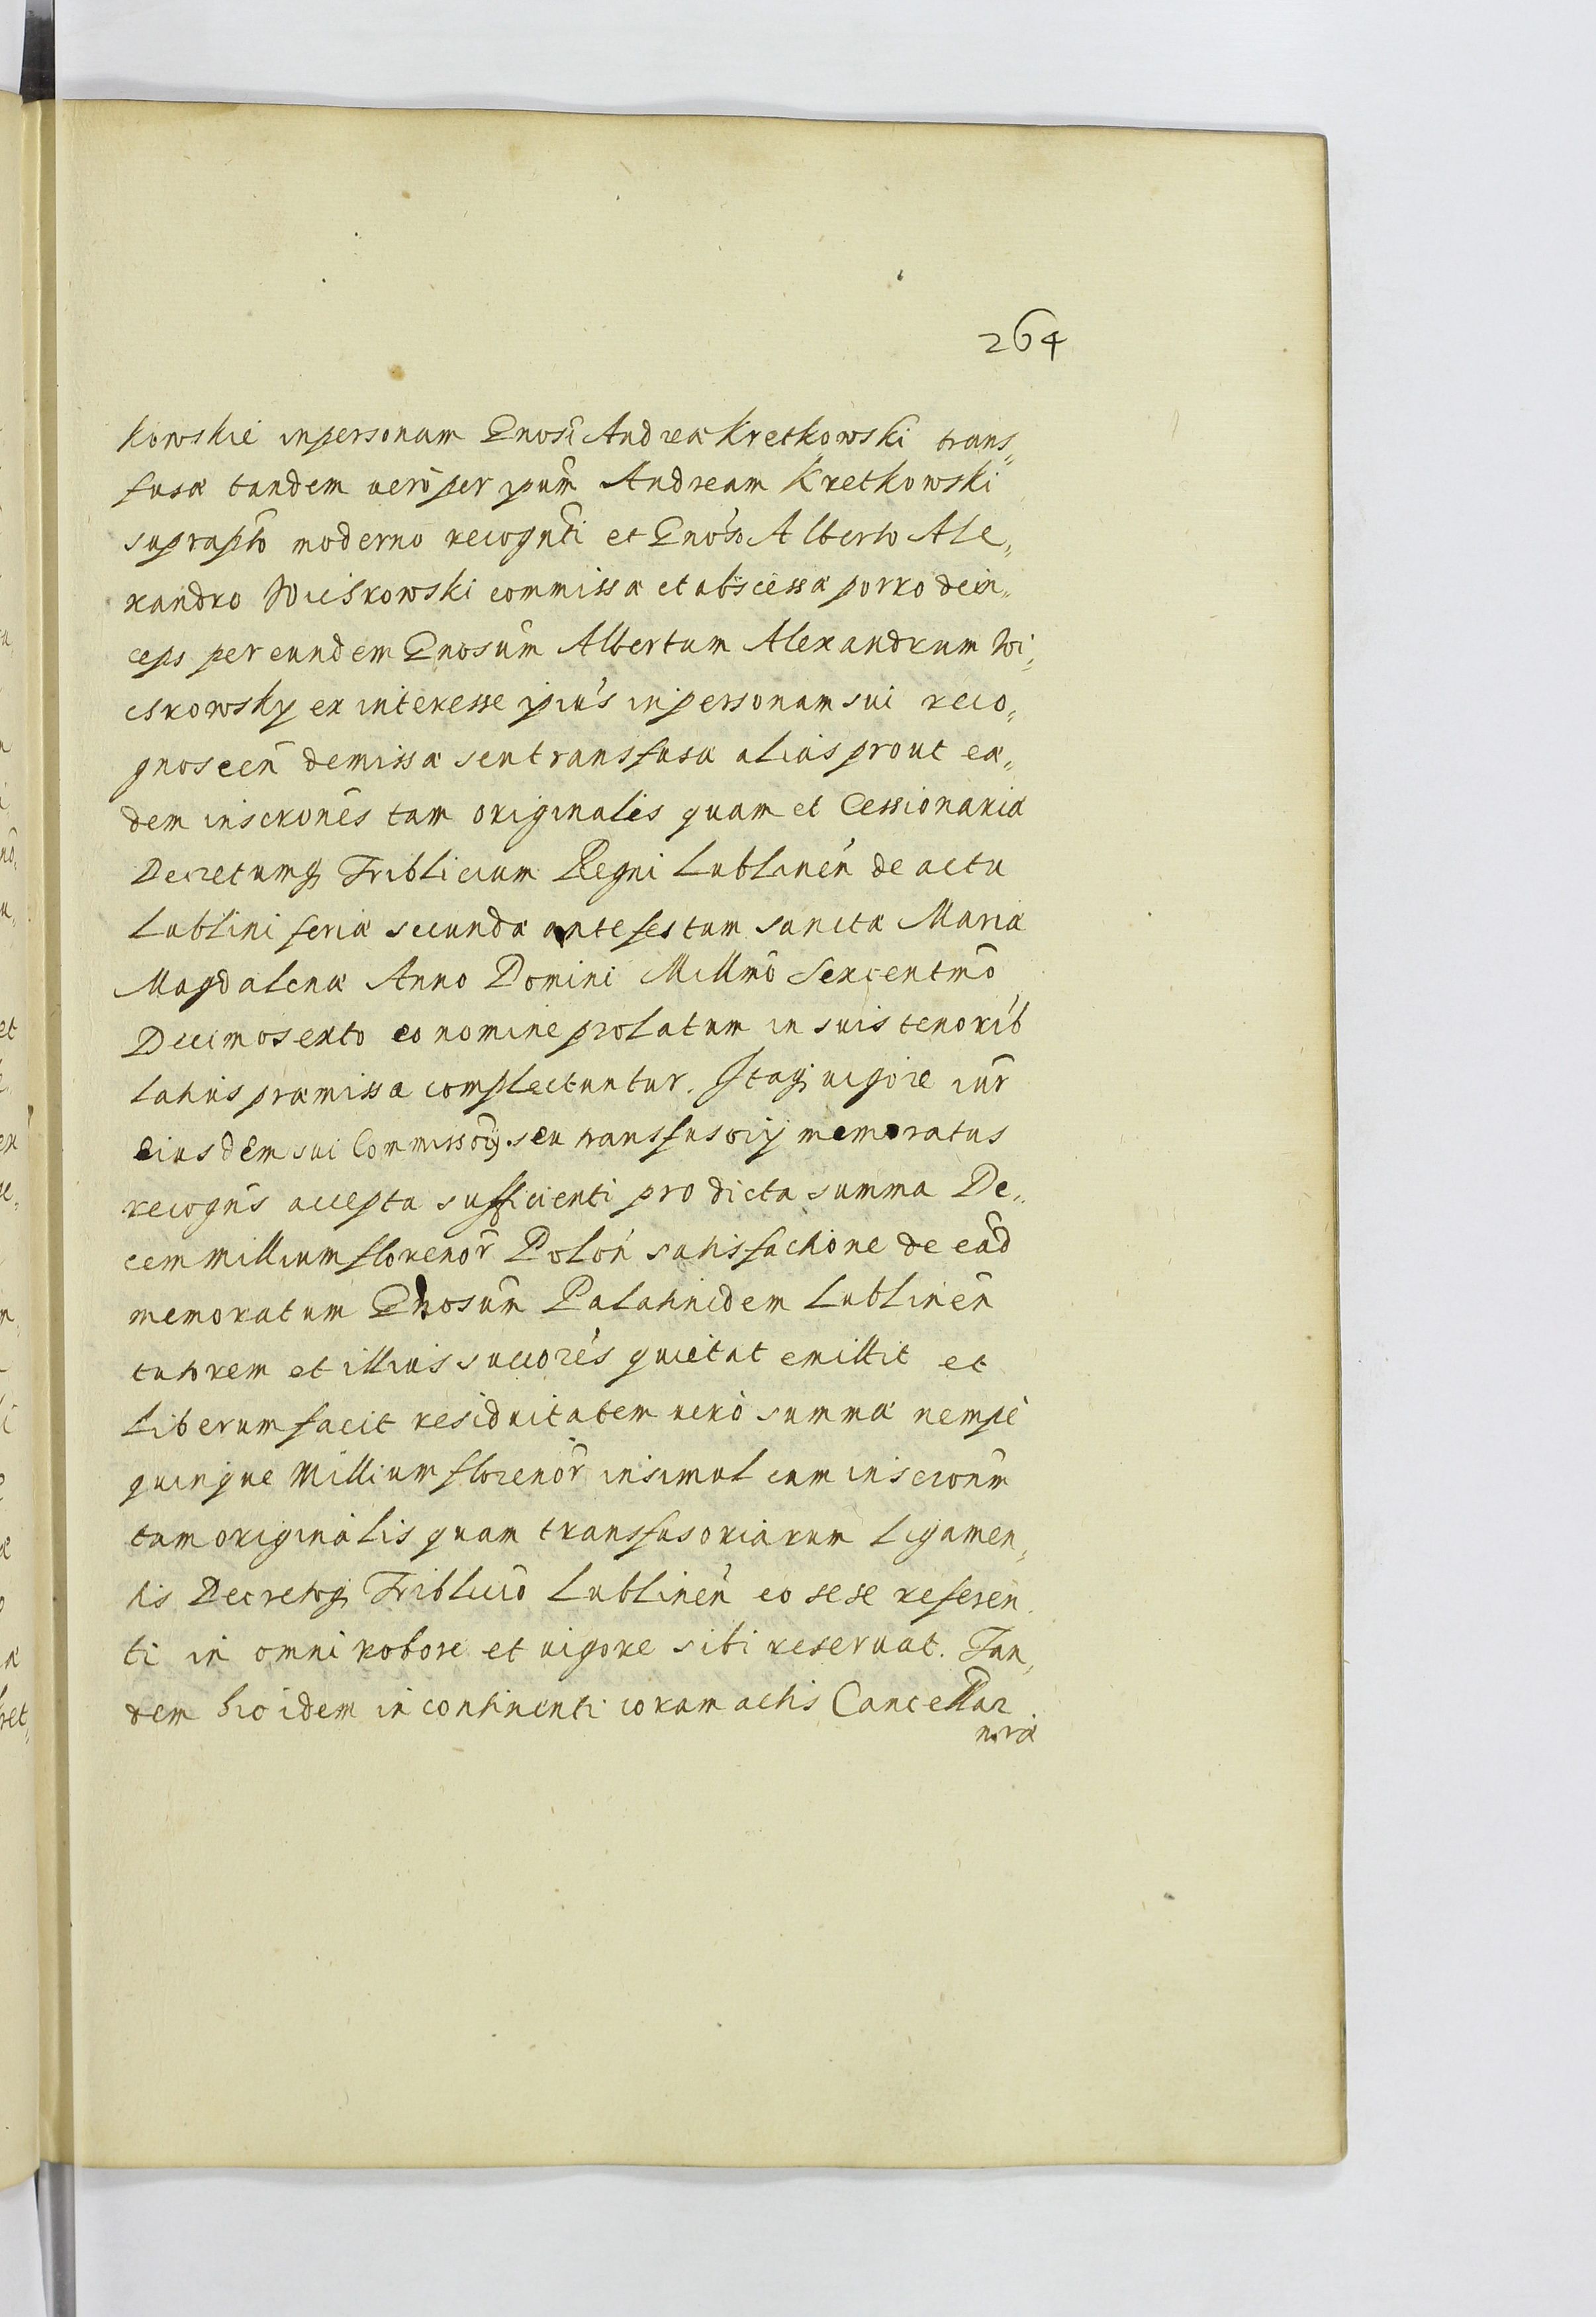 264
kowskie in personam Gnosi Andreæ Kretkowski trans„
fusæ tandem uero per ipum Andream Kretkowski
suprapto moderno recognti et Gnoso Alberto Ale„
xandro Wiciskowski commissæ et abscessæ porro dein„
ceps per eundem Gnosum Albertum Alexandrum Wi„
ciskowsky ex interesse ipius in personam sui reco„
gnoscen demissæ seu transfusæ alias prout eæ„
dem inscrones tam originales quam et Cessionariæ
Decretumq Triblicium Regni Lublinen de actu
Lublini feria secunda ante festum sanctæ Mariæ
Magdalenæ Anno Domini Millmo Sexcentmo
Decimosexto eo nomine prolatum in suis tenorib
latius præmissa complectuntur. Itaq uigore iur
eiusdem sui Commissorij seu transfusorij memoratus
recogns accepta sufficienti pro dicta summa De„
cem millium florenor Polon satisfactione de ead
memoratum Gnosum Palatinidem Lublinen
tutorem et illius succores quietat emittit et
liberum facit residuitatem uero summæ nempe
quinque millium florenor insimul cum inscronum
tam originalis quam transfusoriarum ligamen„
tis Decretoq Triblicio Lublinen eo sese referen
ti in omni robore et uigore sibi reseruat. Tan„
dem hic idem in continenti coram actis Cancellar
nræ